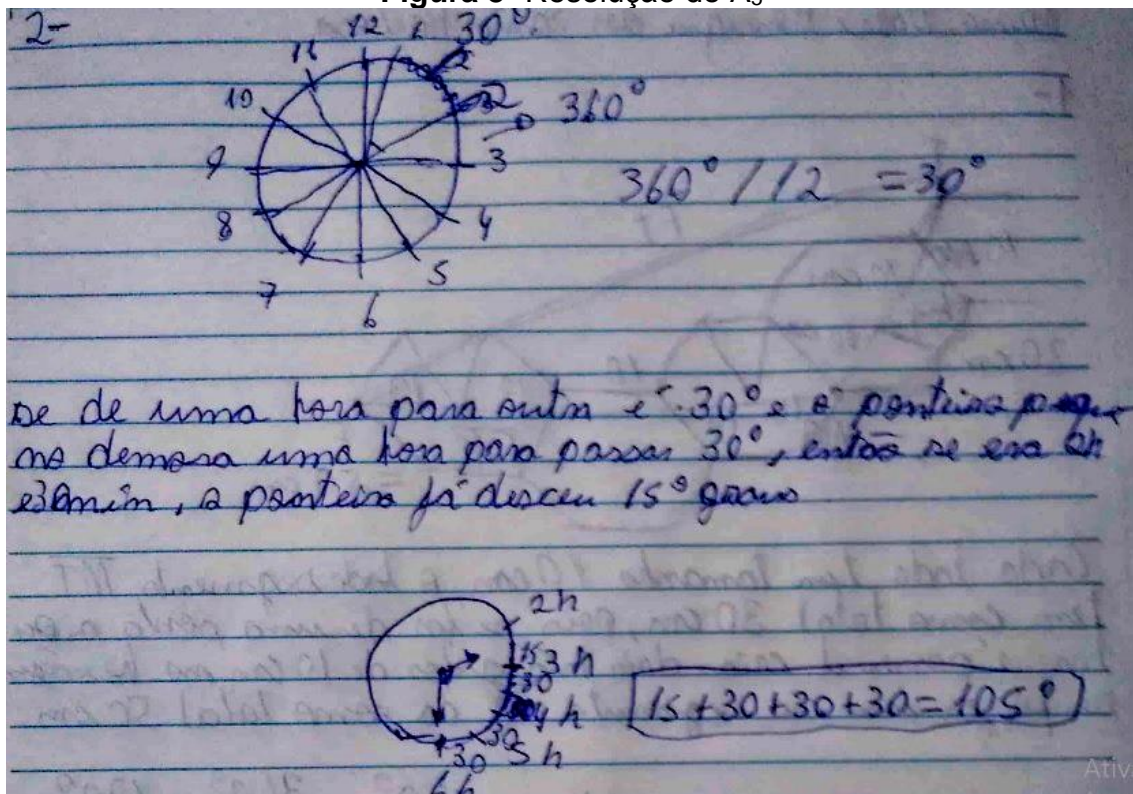 Figura 3 Resolução de A3
2-
12 1 30°
11 2
10 360°
9 3
360°/12 = 30°
8 4
7 5
6
se de uma hora para outra é 30° e o ponteiro peque
no demora uma hora para passar 30°, então se era 2h
e 30min, o ponteiro já desceu 15°
2h
15 3h
30
4h 15+30+30+30=105°
30 5h
30
6h
Ativ